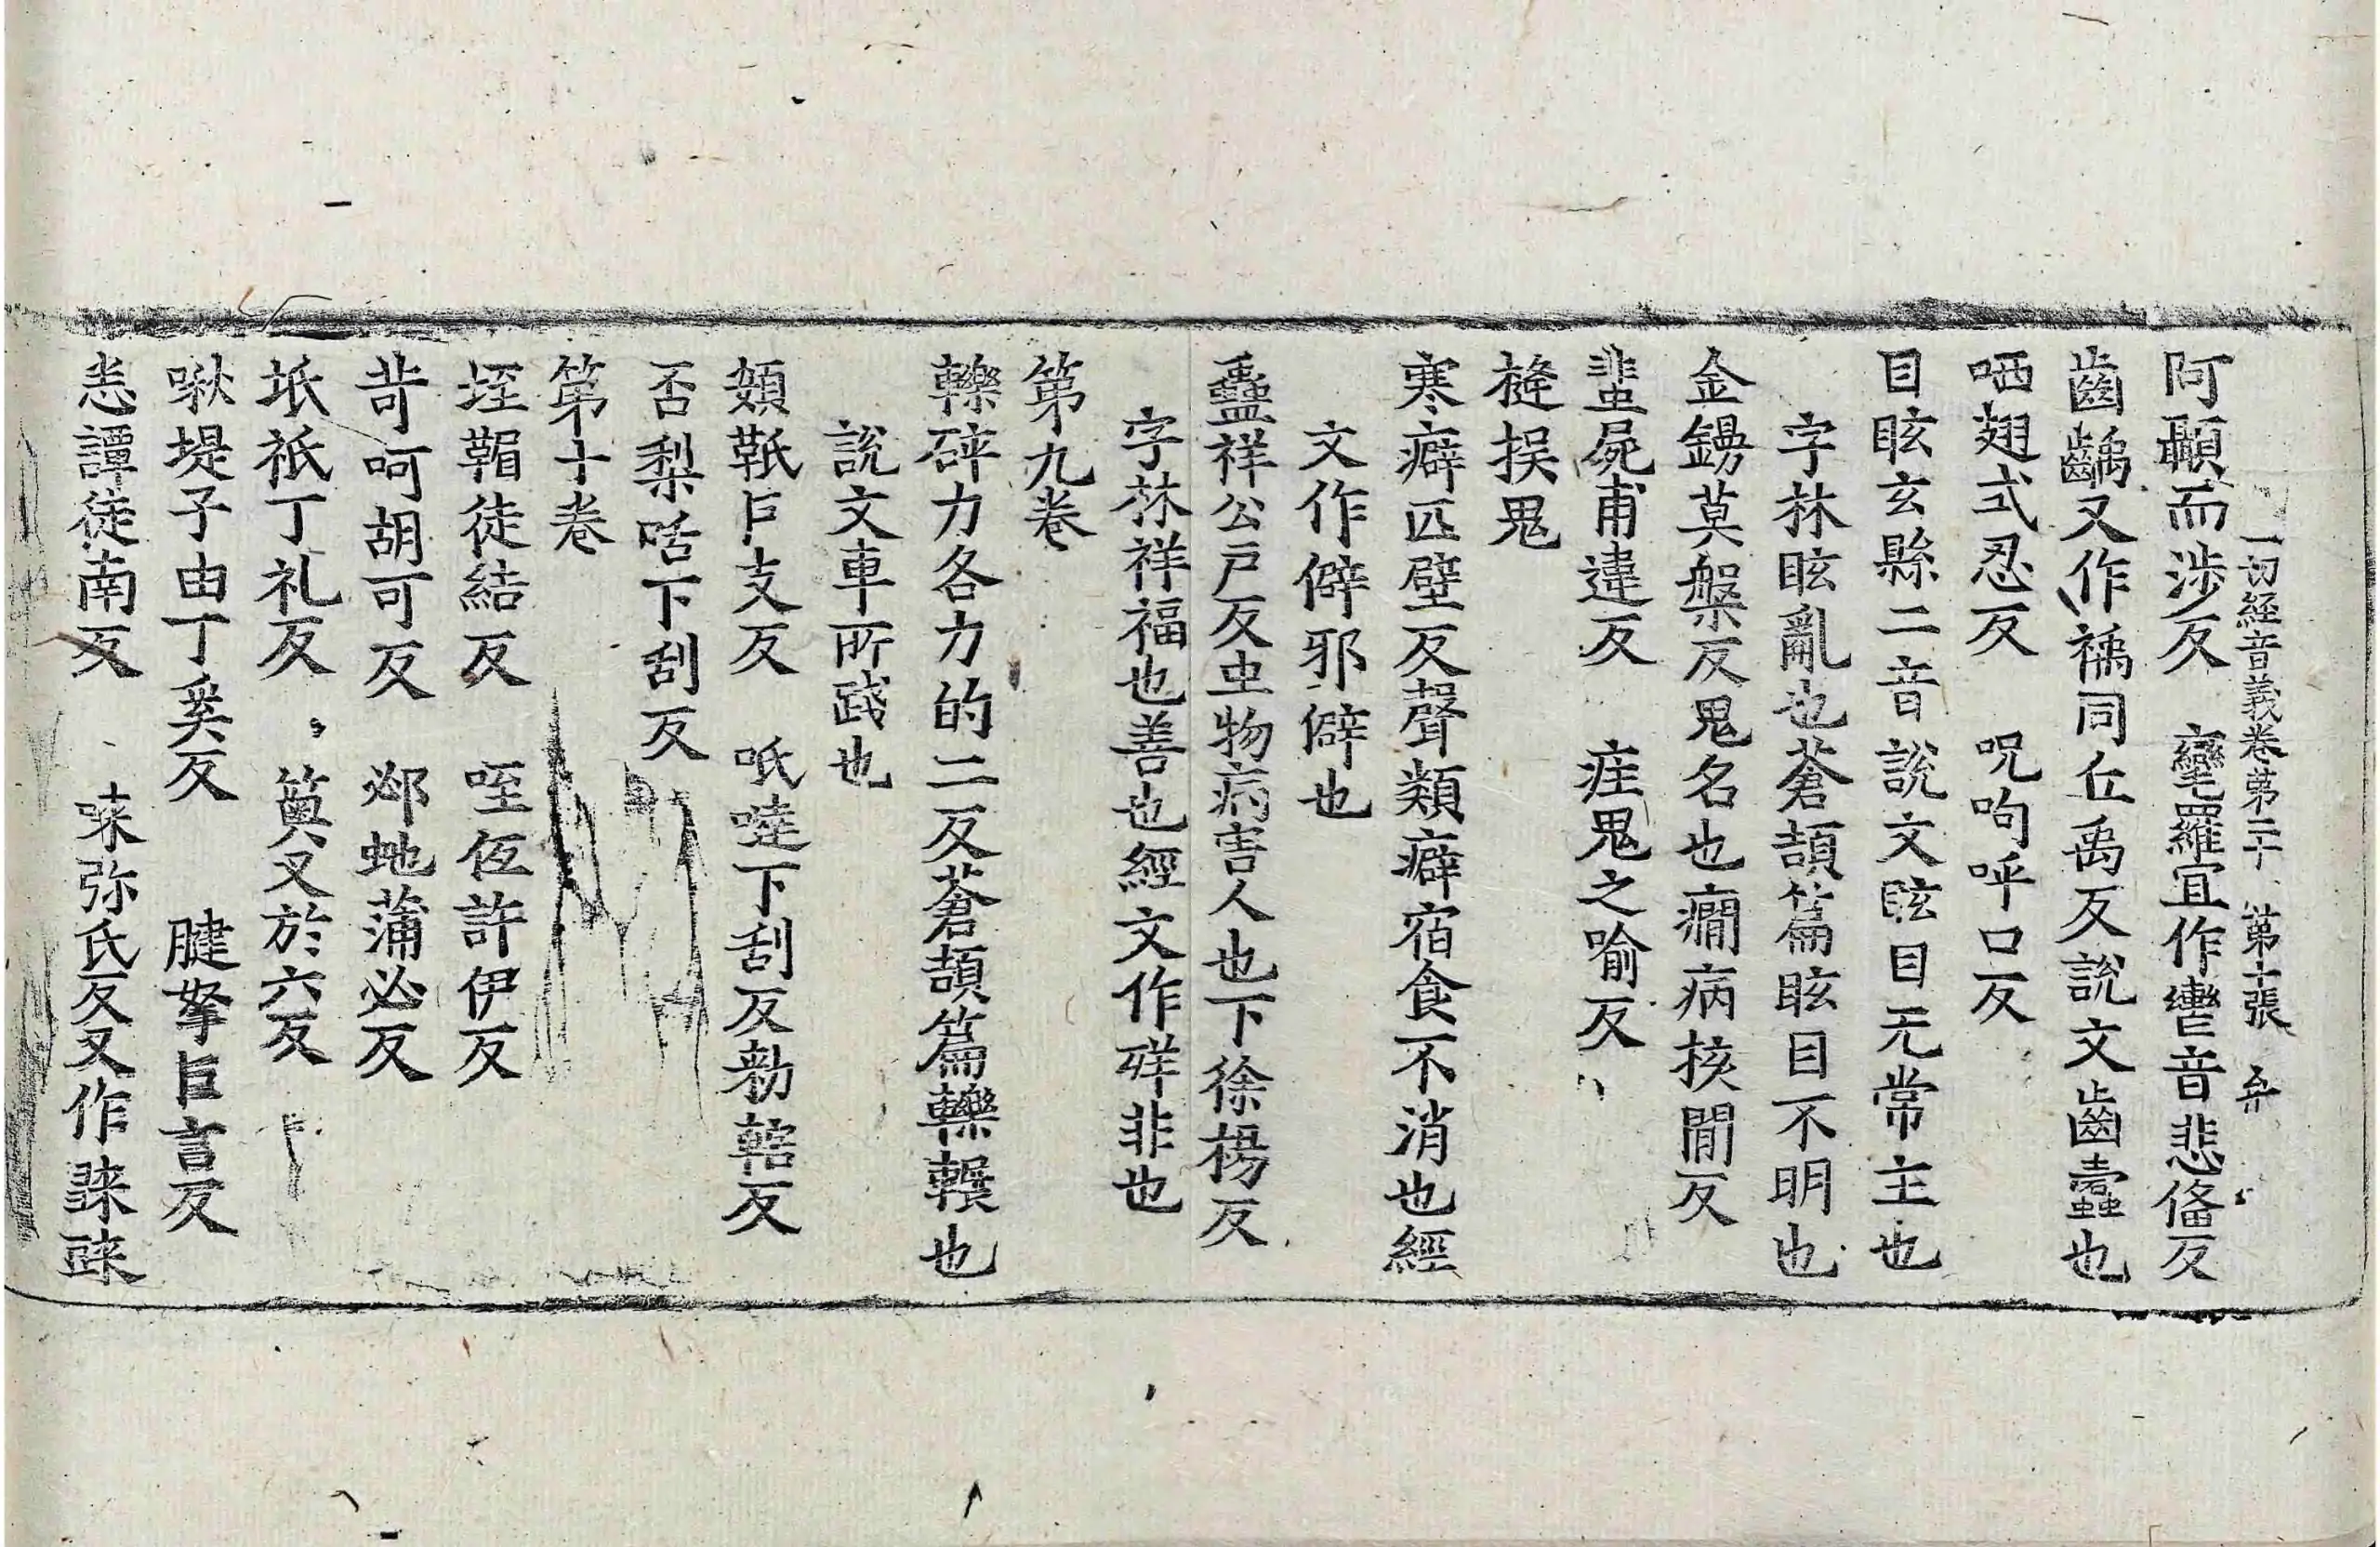 一切經音義卷第二十 第十張
阿顳而涉反 㝈羅宜作轡音悲俻反
齒齲又作𤘐同丘禹反說文齒蠹也
哂翅式忍反 呪呴呼口反
目眩玄縣二音說文眩目无常主也
字林眩亂也蒼頡篇眩目不明也
金鐊莫槃反鬼名也癇病核閒反
蜚屍甫違反 疰鬼之喻反
㨹捑鬼
寒癖匹壁反聲類癖宿食不消也經
文作僻邪僻也
蠱祥公戶反虫物病害人也下徐楊反
字林祥福也善也經文作𥒞非也
第九卷
轢碎力各力的二反蒼頡篇轢輾也
說文車所踐也
䫌䩚卩支反 呧噠下刮反勑鞳反
否梨咶下刮反
第十卷
垤䩗徒結反 咥㐌許伊反
㱔呵胡可反 邲虵蒲必反
坻祇丁礼反 䉛又於六反
啾堤子由丁奚反 腱拏巨言反
恙譚徒南反 㖼弥氏反又作䛧䛧